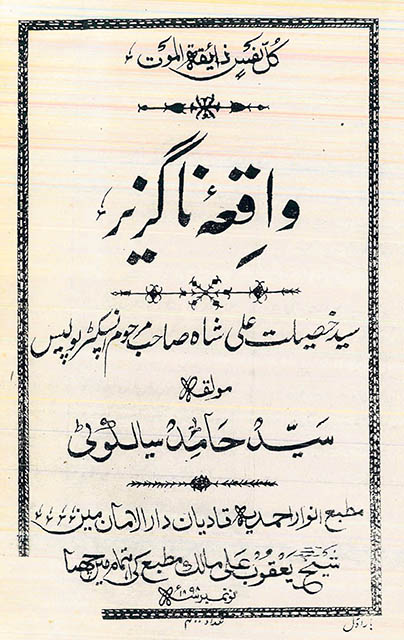 کُلُّ نَفْسٍ ذَائِقَةُ الْمَوْتِ
واقِعۂ ناگزیر
سید خصیلت علی شاہ صاحب مرحوم انسپکٹر پولیس
مولفہ
سیّد حامد سیالکوٹی
مطبع انوار احمدیہ قادیان دارالامان میں
شیخ یعقوب علی مالک مطبع کی اہتمام میں چھپا
نومبر ۱۸۹۸ء
بار اول
تعداد